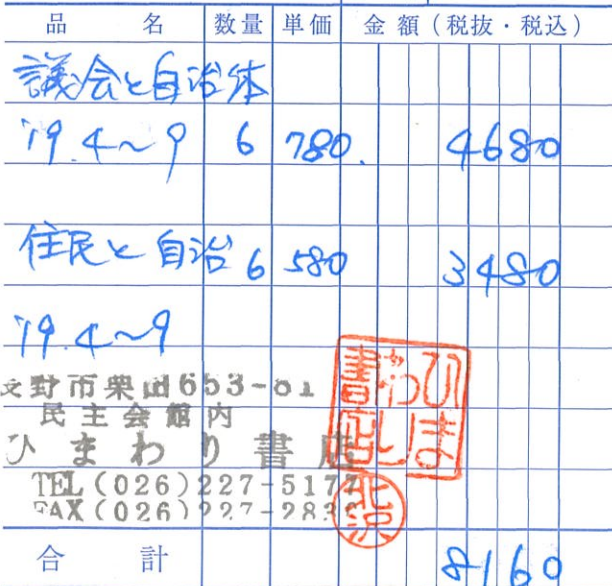 品名 数量 単価 金額（税抜・税込）
議会と自治体
'19.4〜9 6 780. 4680
住民と自治 6 580 3480
'19.4〜9
野市栗田653-81
民主会館内
ひまわり書店
TEL(026)227-5177
FAX(026)227-283
ひまわり書店之印
北沢
合計 8160